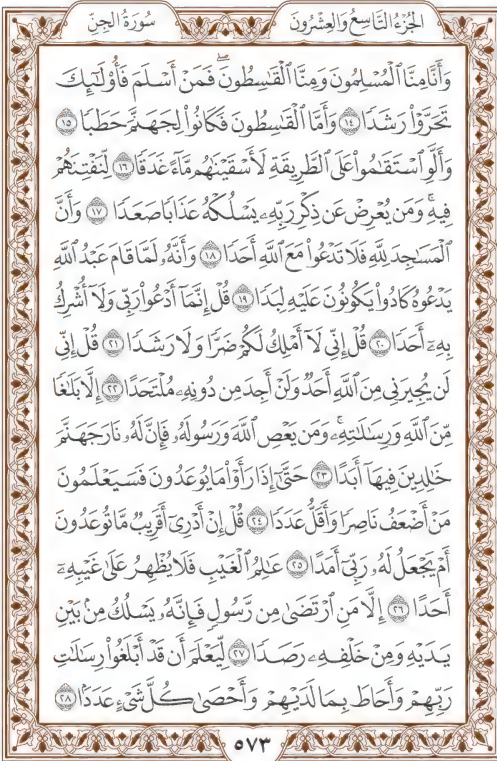 الجُزْءُ التَّاسِعُ وَالعِشْرُونَ سُورَةُ الجِنِّ
وَأَنَّا مِنَّا ٱلْمُسْلِمُونَ وَمِنَّا ٱلْقَٰسِطُونَۖ فَمَنْ أَسْلَمَ فَأُو۟لَٰٓئِكَ
تَحَرَّوْا۟ رَشَدًا ١٤ وَأَمَّا ٱلْقَٰسِطُونَ فَكَانُوا۟ لِجَهَنَّمَ حَطَبًا ١٥
وَأَلَّوِ ٱسْتَقَٰمُوا۟ عَلَى ٱلطَّرِيقَةِ لَأَسْقَيْنَٰهُم مَّآءً غَدَقًا ١٦ لِّنَفْتِنَهُمْ
فِيهِۚ وَمَن يُعْرِضْ عَن ذِكْرِ رَبِّهِۦ يَسْلُكْهُ عَذَابًا صَعَدًا ١٧ وَأَنَّ
ٱلْمَسَٰجِدَ لِلَّهِ فَلَا تَدْعُوا۟ مَعَ ٱللَّهِ أَحَدًا ١٨ وَأَنَّهُۥ لَمَّا قَامَ عَبْدُ ٱللَّهِ
يَدْعُوهُ كَادُوا۟ يَكُونُونَ عَلَيْهِ لِبَدًا ١٩ قُلْ إِنَّمَآ أَدْعُوا۟ رَبِّى وَلَآ أُشْرِكُ
بِهِۦٓ أَحَدًا ٢٠ قُلْ إِنِّى لَآ أَمْلِكُ لَكُمْ ضَرًّا وَلَا رَشَدًا ٢١ قُلْ إِنِّى
لَن يُجِيرَنِى مِنَ ٱللَّهِ أَحَدٌ وَلَنْ أَجِدَ مِن دُونِهِۦ مُلْتَحَدًا ٢٢ إِلَّا بَلَٰغًا
مِّنَ ٱللَّهِ وَرِسَٰلَٰتِهِۦۚ وَمَن يَعْصِ ٱللَّهَ وَرَسُولَهُۥ فَإِنَّ لَهُۥ نَارَ جَهَنَّمَ
خَٰلِدِينَ فِيهَآ أَبَدًا ٢٣ حَتَّىٰٓ إِذَا رَأَوْا۟ مَا يُوعَدُونَ فَسَيَعْلَمُونَ
مَنْ أَضْعَفُ نَاصِرًا وَأَقَلُّ عَدَدًا ٢٤ قُلْ إِنْ أَدْرِىٓ أَقَرِيبٌ مَّا تُوعَدُونَ
أَمْ يَجْعَلُ لَهُۥ رَبِّىٓ أَمَدًا ٢٥ عَٰلِمُ ٱلْغَيْبِ فَلَا يُظْهِرُ عَلَىٰ غَيْبِهِۦٓ
أَحَدًا ٢٦ إِلَّا مَنِ ٱرْتَضَىٰ مِن رَّسُولٍ فَإِنَّهُۥ يَسْلُكُ مِنۢ بَيْنِ
يَدَيْهِ وَمِنْ خَلْفِهِۦ رَصَدًا ٢٧ لِّيَعْلَمَ أَن قَدْ أَبْلَغُوا۟ رِسَٰلَٰتِ
رَبِّهِمْ وَأَحَاطَ بِمَا لَدَيْهِمْ وَأَحْصَىٰ كُلَّ شَىْءٍ عَدَدًۢا ٢٨
٥٧٣